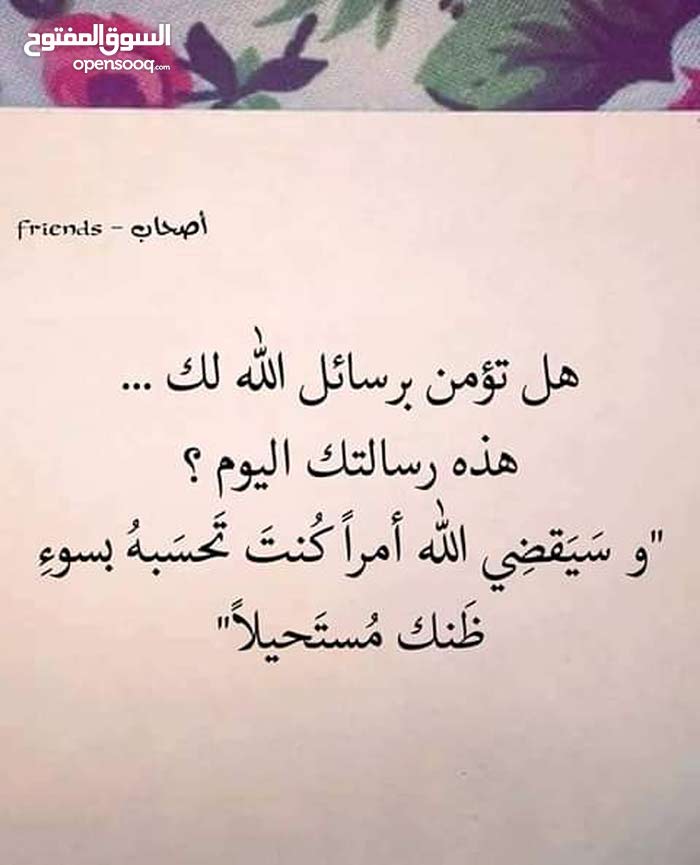 السوق المفتوح
opensooq.com
أصحاب - friends
هل تؤمن برسائل الله لك ...
هذه رسالتك اليوم ؟
"و سَيَقضِي الله أمراً كُنتَ تَحسَبهُ بسوءِ
ظَنك مُستَحيلاً"